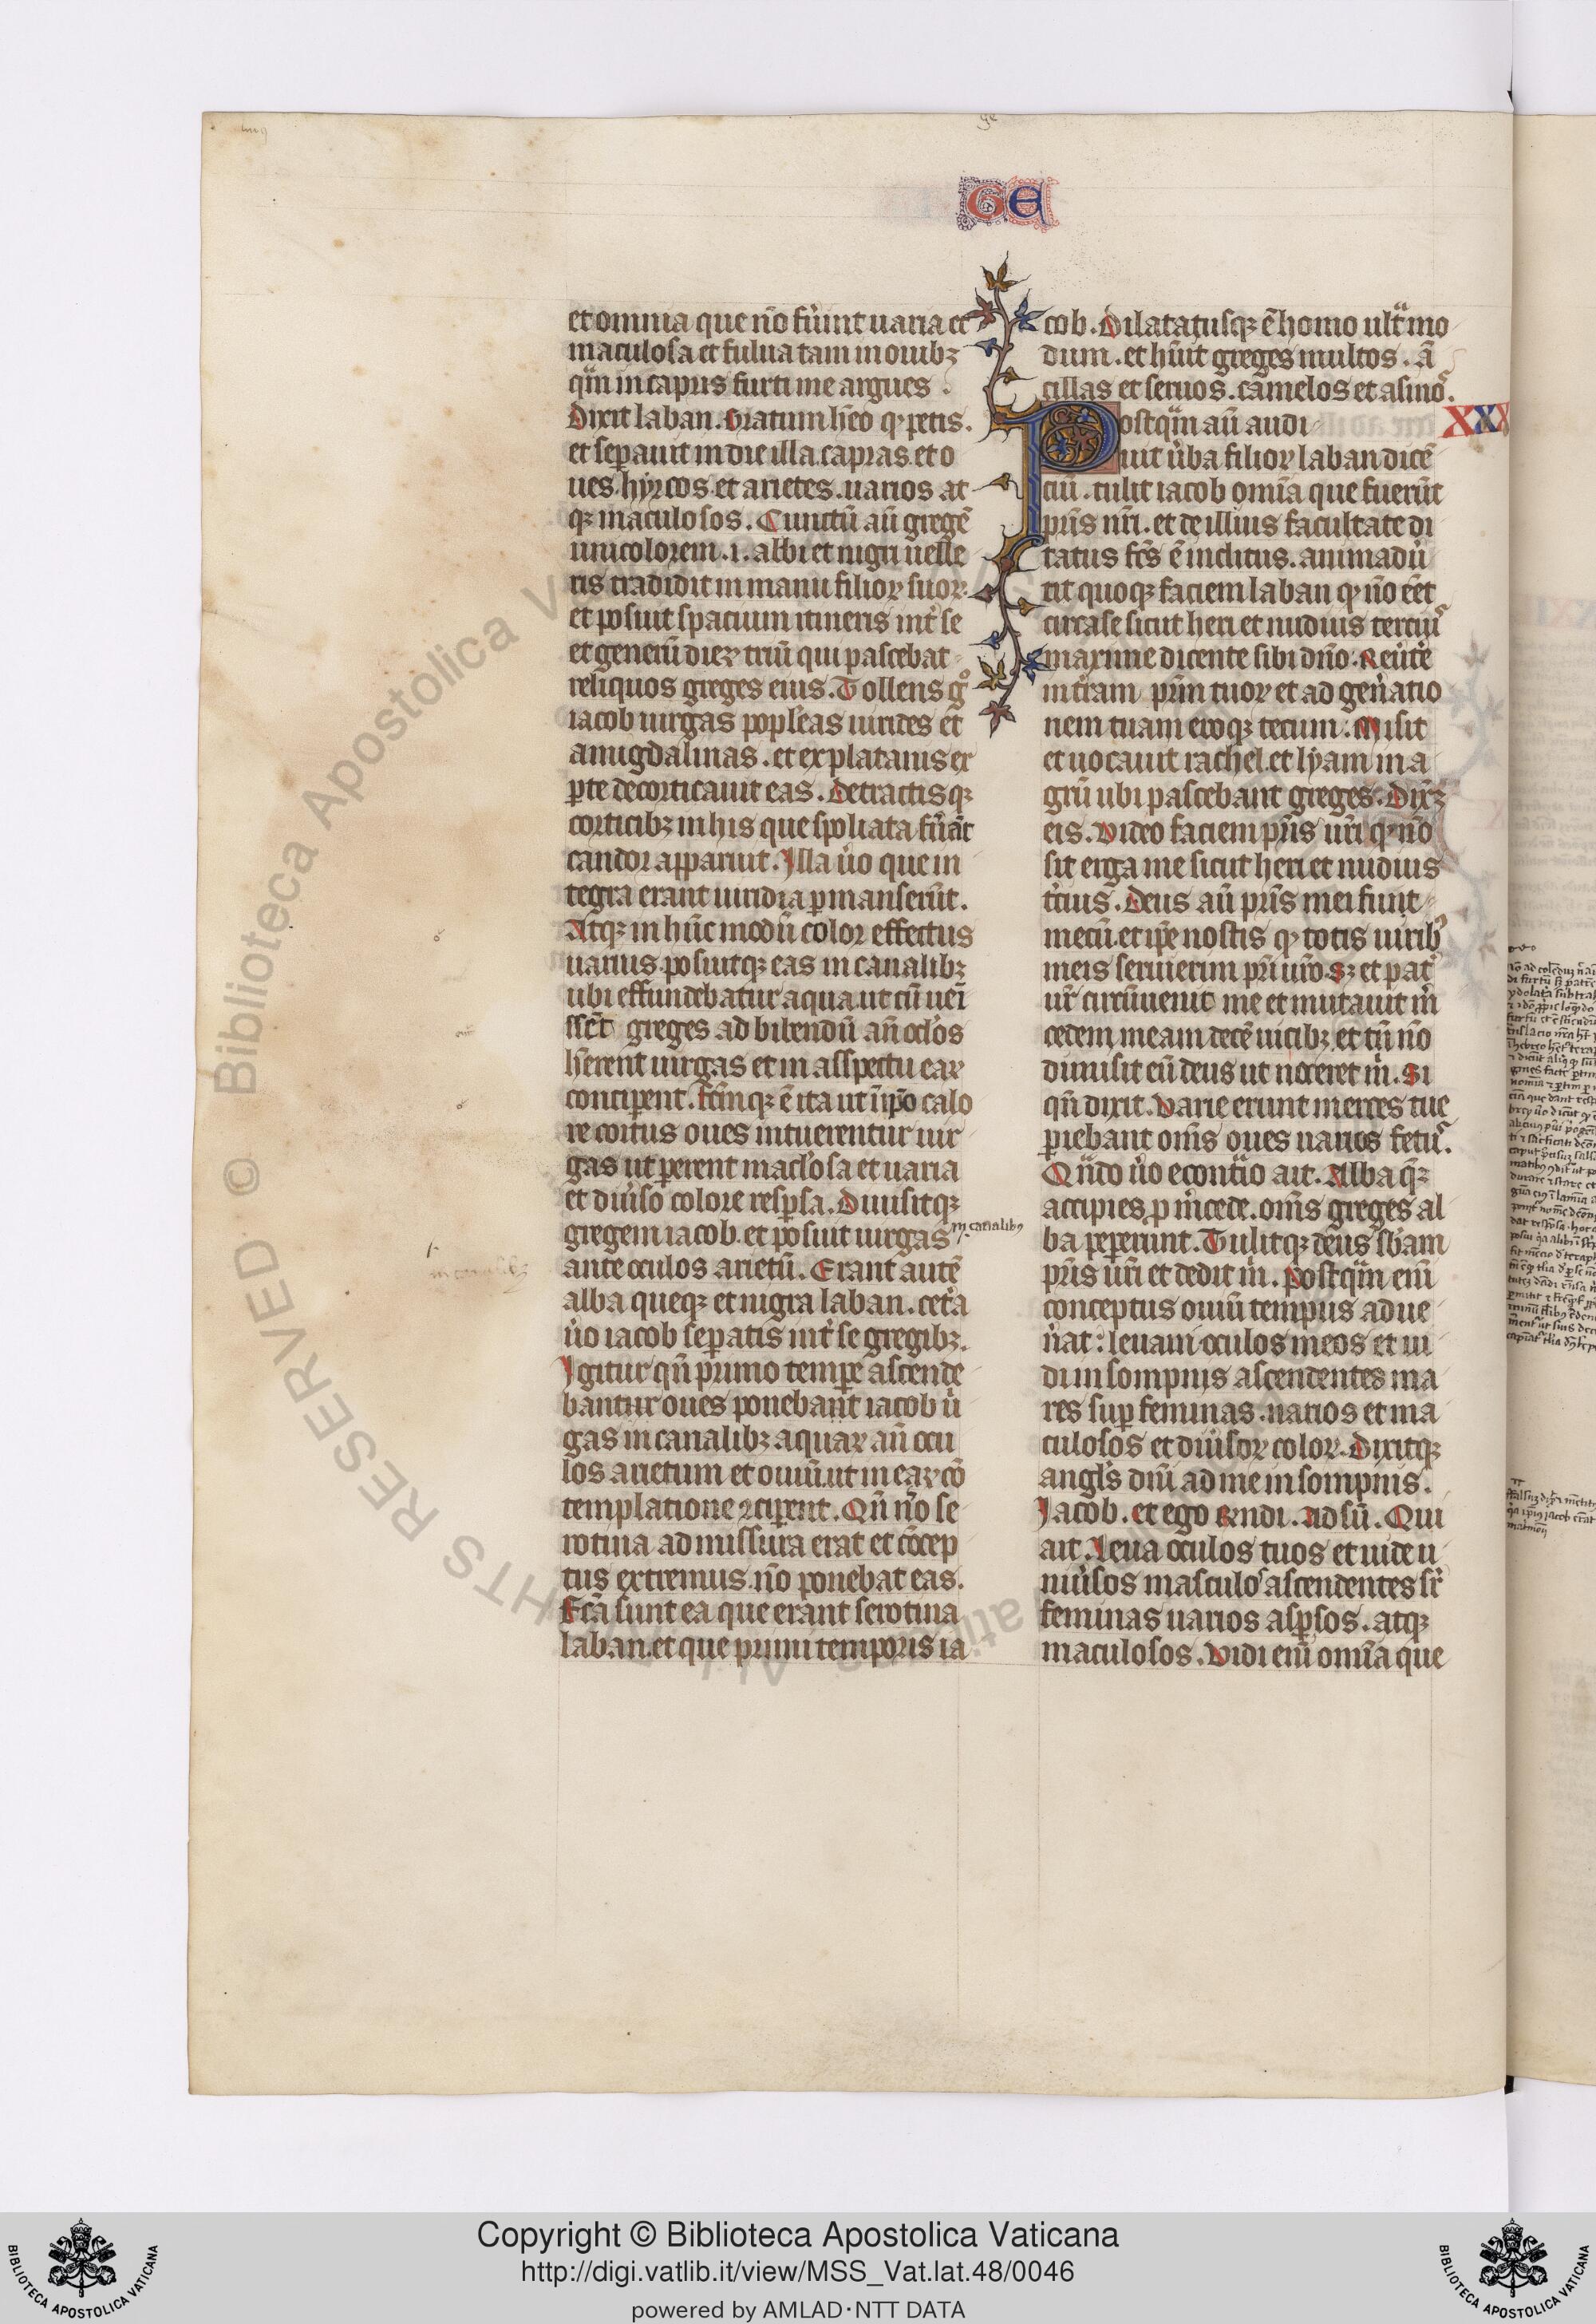 GE
et omnia que nō fuͥint uaria et
maculosa et fulua tam in ouibꝫ
qͣm in capris furti me argues.
Dixit laban. Gratum hēo qͩ petis.
et seꝑauit in die illa capras et o
ues hyrcos et arietes. uarios at
qꝫ maculosos. Cunctū aū gregē
unicolorem .i. albi et nigri uelle
ris tradidit in manu filioꝝ suoꝝ.
et posuit spacium itineris int̾ se
et generū dieꝝ triū qui pascebat
reliquos greges eius. Tollens gͦ
iacob uirgas popl̾eas uirides et
amigdalinas. et ex platanis ex
ꝑte decorticauit eas. Detractisqꝫ
corticibꝫ in his que spoliata fu̾ant
candor apparuit. Illa u̾o que in
tegra erant uiridia ꝑmanserūt.
Atqꝫ in hūc modū color effectus
uarius. posuitqꝫ eas in canalibꝫ
ubi effundebatur aqua ut cū uei̅
ssēt greges ad bibendū añ ocl̾os
hr̄ent uirgas et in asspectu eaꝝ
conciꝑent. fc̄mqꝫ ē ita ut ī ip̄o calo
re coitus oues intuerentur uir
gas ut ꝑerent macl̾osa et uaria
et diu̾so colore resꝑsa. Diuisitqꝫ
gregem iacob. et posuit uirgas in canalibꝰ
ante oculos arietū. Erant autē
alba queqꝫ et nigra laban. cet̾a
u̾o iacob seꝑatis int̾ se gregibꝫ.
Igitur qn̄ primo temꝑe ascende
bantur oues ponebant iacob u̾
gas in canalibꝫ aquaꝝ añ ocu
los arietum et ouiū. ut in eaꝝ cō
templatione ꝯciꝑent. Qn̄ u̾o se
rotina admissura erat et cōcep
tus extremus. nō ponebat eas.
Fc̄a sunt ea que erant serotina
laban. et que primi temporis ia
cob. Dilatatusqꝫ ē homo ultͣ mo
dum. et hūit greges multos. ā
cillas et seruos. camelos et asinoˢ.
XXX
Postqͣm aū audi
uit u̾ba filioꝝ laban dicē
ciū. tulit iacob omīa que fuerūt
pr̄is nr̄i. et de illius facultate di
tatus fc̄s ē inclitus. animadu̾
tit quoqꝫ faciem laban qͩ nō eēt
circa se sicut heri et nudius terciuˢ
maxime dicente sibi dn̄o. Reu̾te̾
in t̾ram pr̄m tuoꝝ et ad gen̾atio
nem tuam eroqꝫ tecum. Misit
et uocauit rachel. et lyam in a
grū ubi pascebant greges. Dixꝫ
eis. Video faciem pr̄is ur̄i qͩ nō
sit erga me sicut heri et nudius
t̾cius. Deus aū pr̄is mei fuit
mecū. et ip̄e nostis qͩ totis uiribꝰ
meis seruierim pr̄i ur̄o. Sꝫ et pat̾
ur̄ circūuenit me et mutauit m̾
cedem meam decē uicibꝫ. et tn̄ nō
dimisit eū deus ut noceret m̾. Si
qn̄ dixit. Varie erunt merces tue
pariebant om̄s oues uarios fetuˢ.
Qn̄do u̾o econtͣio ait. Alba q̄qꝫ
accipies ꝓ m̾cede. om̄s greges al
ba peperunt. Tulitqꝫ deus sb̄am
pr̄is ur̄i et dedit m̾. Postqͣm eni̅
conceptus ouiū tempus adue
n̾at: leuaui oculos meos et ui
di in sompnis ascendentes ma
res suꝑ feminas. uarios et ma
culosos et diu̾soꝝ coloꝝ. Dixitqꝫ
angl̾s dn̄i ad me in sompnis.
Iacob. et ego rn̄di. Adsū. Qui
ait. Leua oculos tuos et uide u
niu̾sos masculoˢ ascendentes sr̾
feminas uarios asꝑsos. atqꝫ
maculosos. Vidi eni̅ omīa que
Copyright © Biblioteca Apostolica Vaticana
http://digi.vatlib.it/view/MSS_Vat.lat.48/0046
powered by AMLAD·NTT DATA
BIBLIOTECA APOSTOLICA VATICANA
BIBLIOTECA APOSTOLICA VATICANA